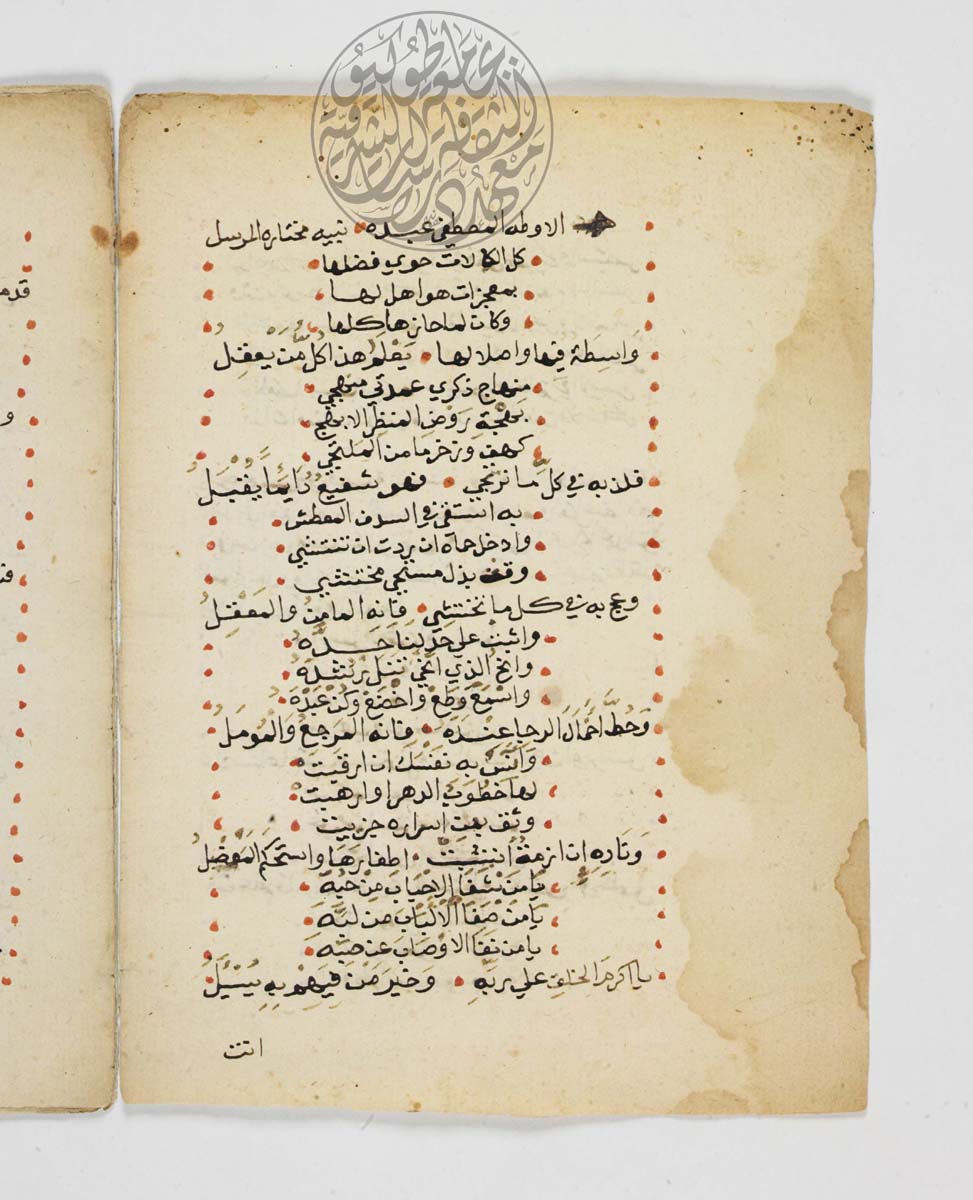 جامعة طوكيو
معهد الدراسات الشرقية
الا وطه المصطفى عبده نبيه مختاره المرسل
كل الكمالات حوي فضلها
بمعجزات هو اهل لها
وكان لما حازها كلها
وَاسِطَة فيها واصلا لها يَعْلَمُ هذا كُلُّ مَنْ يعقلُ
منهاج ذكري عمدتي منهجي
بهْجَةِ رَوْض المنظر الابهج
كهف وزخر ما من الملتجي
فلذ به في كل ما نرتجي فهو شفيعٌ دُايمًا يقبَلُ
به انتقى في السدف المعطش
وادخل حماه ان بردت ان تنتشي
وقف بذل مستجي مختشي
وعج به في كل ما تختشي فانه المامنُ والمعْقِلُ
واثبت علي
وانح الذي انحي تنل رشده
واسْمَعْ وَطِعْ وَاخْضَعْ وكُنْ عَبْدَه
وَحُطَّ أحْمَالَ الرجا عِنْدَه فانه المرجعُ وَالْمُومَلُ
وَانس به نفسك ان ارقيت
لها خطوب الدهر او ارهبت
وثق اسراره جربت
وَنَادِهِ ان ازمةٌ انشبت اظفارها واستحكم المعضلُ
يَا مَن شفا الاحباب من حُبِّه
يَا من صفا الالباب من لبّه
يا من نفا الاوصاب عن صَبِّه
يا اكرم الخلق علي ربّهِ وَخَيرَ مَنْ فيهم بِهِ يُسْئَلُ